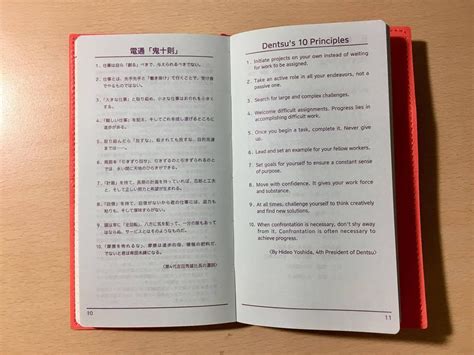 電通「鬼十則」
1. 仕事は自ら「創る」べきで、与えられるべきでない。
2. 仕事とは、先手先手と「働き掛け」て行くことで、受け身でやるものではない。
3. 「大きな仕事」と取り組め、小さな仕事は己れを小さくする。
4. 「難しい仕事」を狙え、そしてこれを成し遂げるところに進歩がある。
5. 取り組んだら「放すな」、殺されても放すな、目的完遂までは……。
6. 周囲を「引きずり回せ」、引きずるのと引きずられるのとでは、永い間に天地のひらきができる。
7. 「計画」を持て、長期の計画を持っていれば、忍耐と工夫と、そして正しい努力と希望が生まれる。
8. 「自信」を持て、自信がないから君の仕事には、迫力も粘りも、そして厚味すらがない。
9. 頭は常に「全回転」、八方に気を配って、一分の隙もあってはならぬ、サービスとはそのようなものだ。
10. 「摩擦を怖れるな」、摩擦は進歩の母、積極の肥料だ、でないと君は卑屈未練になる。
(第4代吉田秀雄社長の遺訓)
10
Dentsu's 10 Principles
1. Initiate projects on your own instead of waiting
for work to be assigned.
2. Take an active role in all your endeavors, not
a passive one.
3. Search for large and complex challenges.
4. Welcome difficult assignments. Progress lies in
accomplishing difficult work.
5. Once you begin a task, complete it. Never give
up.
6. Lead and set an example for your fellow workers.
7. Set goals for yourself to ensure a constant sense
of purpose.
8. Move with confidence. It gives your work force
and substance.
9. At all times, challenge yourself to think creatively
and find new solutions.
10. When confrontation is necessary, don't shy away
from it. Confrontation is often necessary to
achieve progress.
(By Hideo Yoshida, 4th President of Dentsu)
11